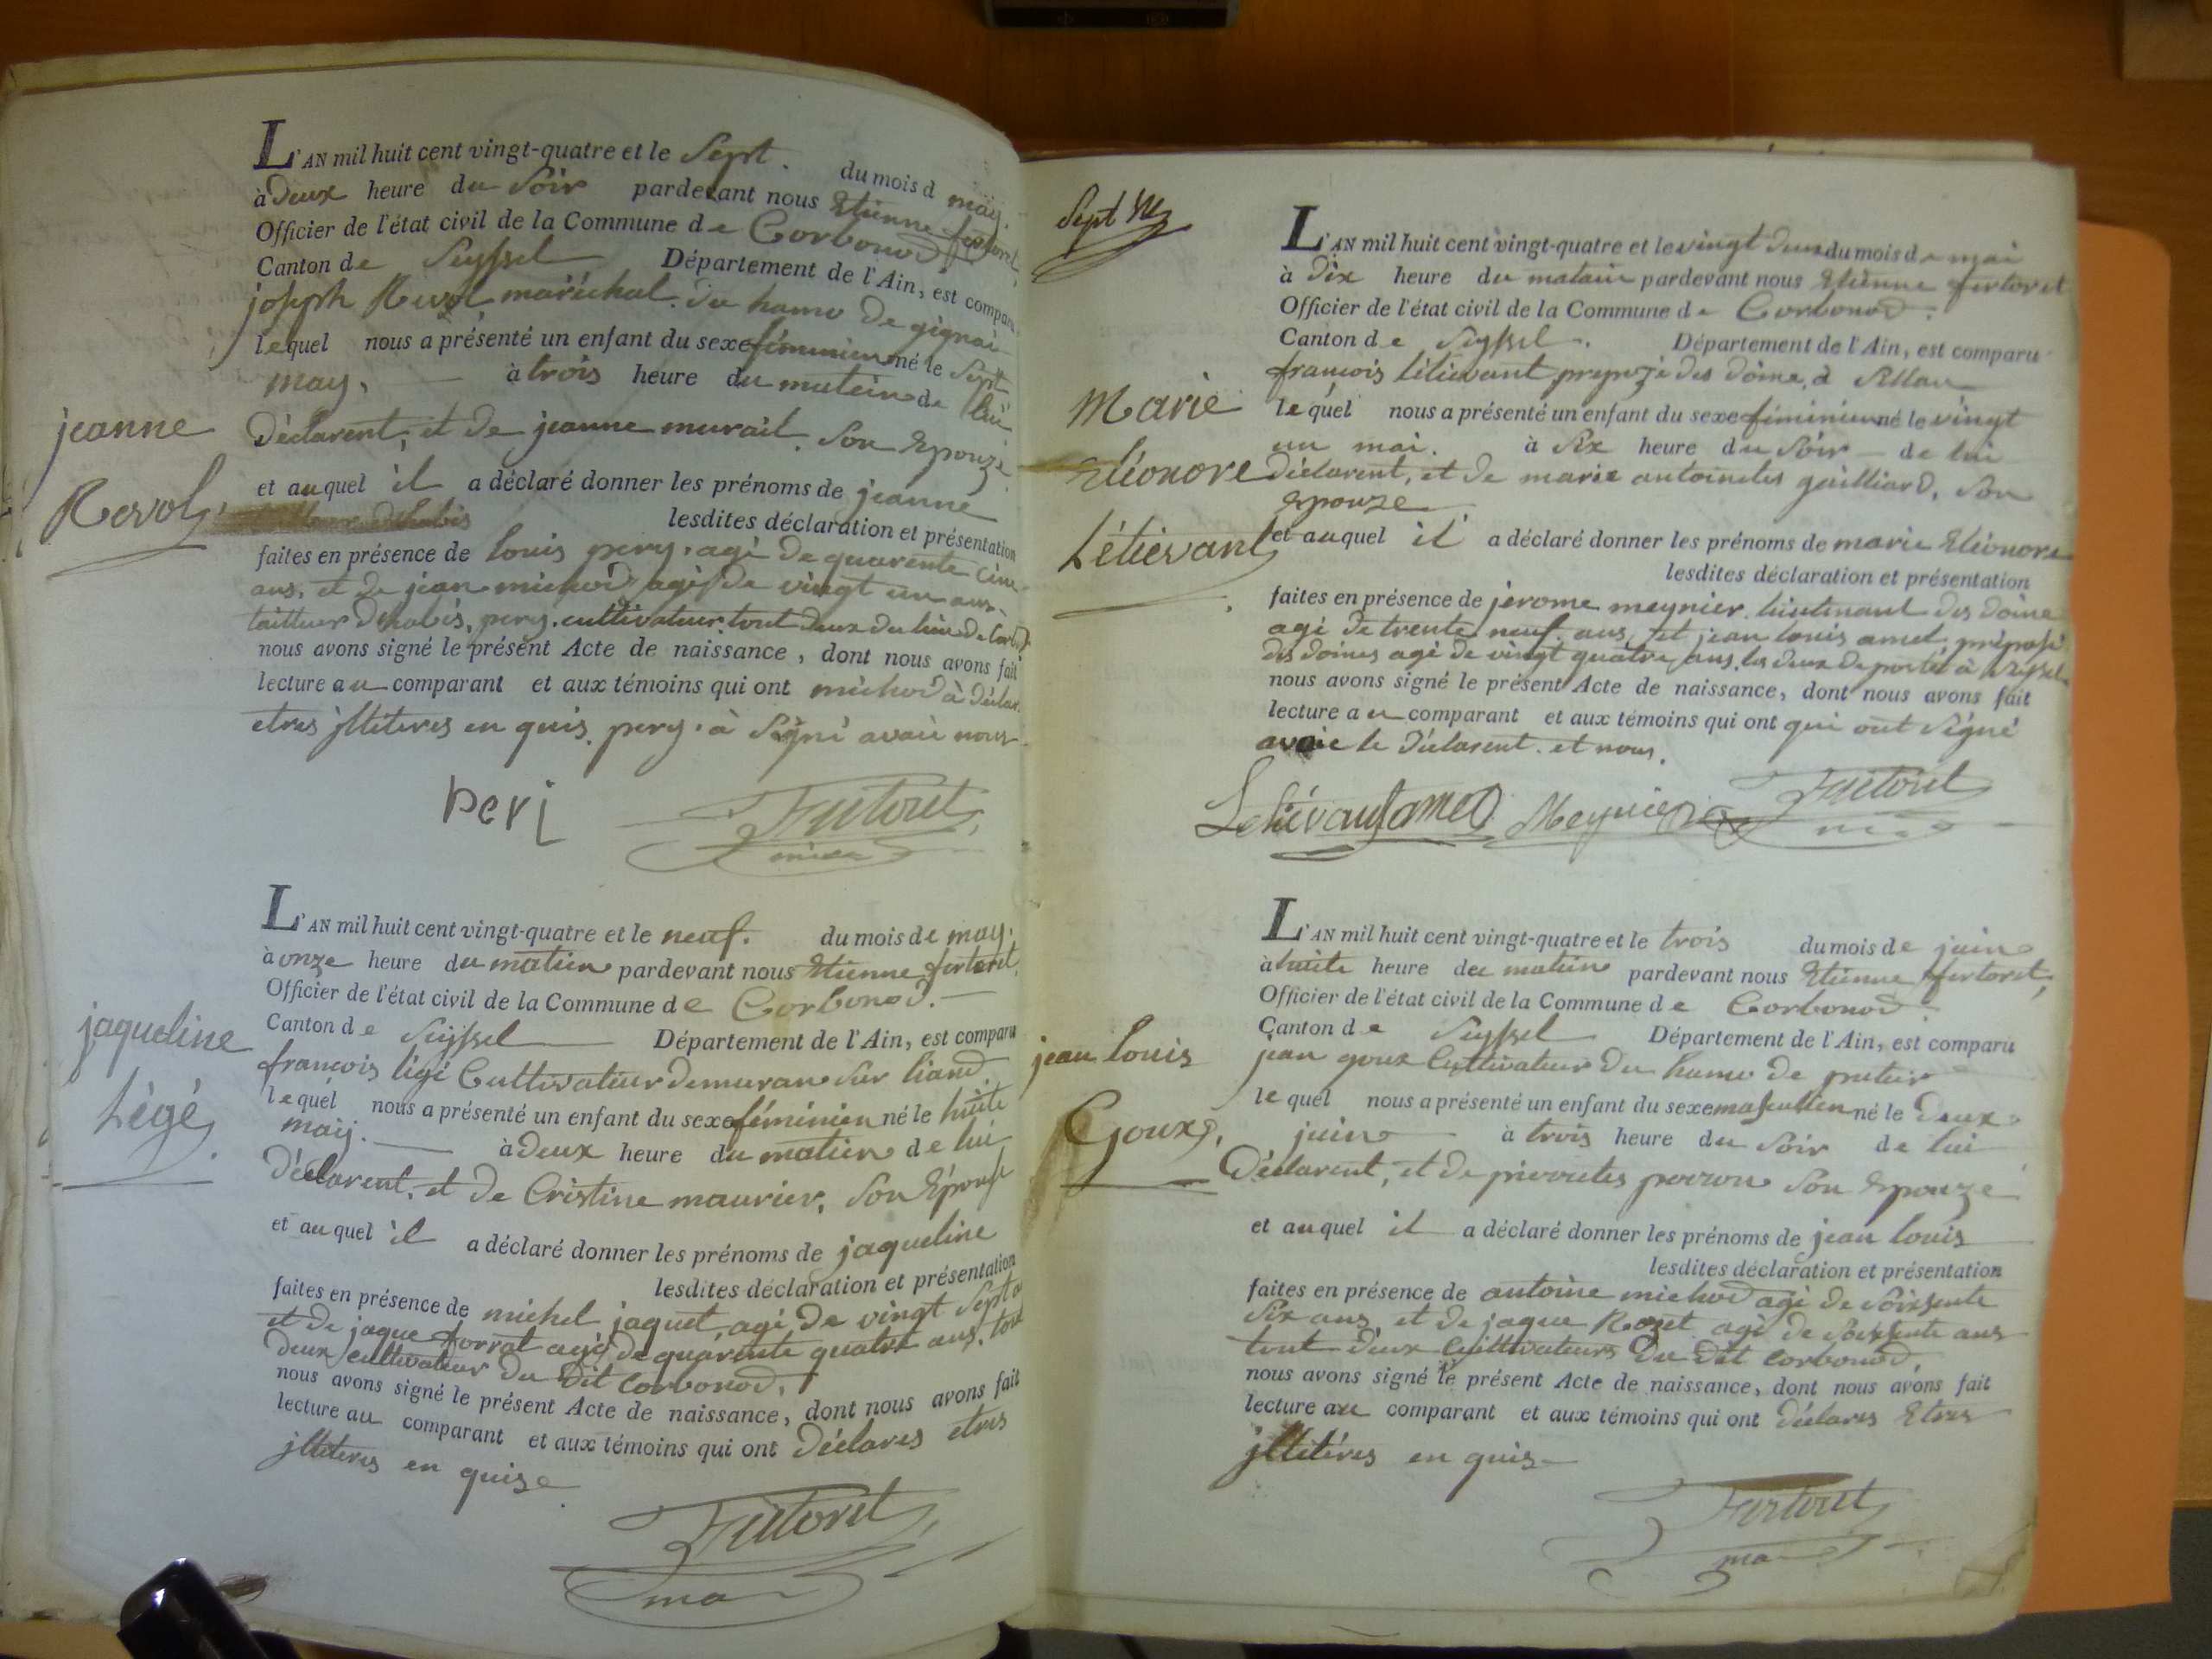 L'AN mil huit cent vingt-quatre et le Sept. du mois d may.
à Deux heure du Soir pardevant nous Etienne fertoret,
Officier de l'état civil de la Commune de Corbonod
Canton de Seyssel Département de l'Ain, est comparu
joseph Revol maréchal du hamo de gignai
lequel nous a présenté un enfant du sexe féminien né le Sept
may, à trois heure du matein de lui
Déclarent, et de jeanne murail. Son Epouze
jeanne
Revol
et auquel il a déclaré donner les prénoms de jeanne
lesdites déclaration et présentation
faites en présence de louis pery, agé de quarente cinc
ans, et de jean michod agé de vingt un ans
tailluer D'habis, pery, cultivateur tout Deux du lieu de Corbod
nous avons signé le présent Acte de naissance, dont nous avons fait
lecture au comparant et aux témoins qui ont michod à déclar
etres jlleteres en quis. pery, à Signé avaic nous
peri
Fertoret
L'AN mil huit cent vingt-quatre et le neuf. du mois de may.
à onze heure du matien pardevant nous Etienne fertoret
Officier de l'état civil de la Commune de Corbonod.
Canton de Seyssel Département de l'Ain, est comparu
françois légé Cultivateur Demuran Sur liand
lequel nous a présenté un enfant du sexe féminien né le huite
maÿ. à Deux heure du matien de lui
Déclarent. et de Cristine maurier, Son Epouse
jaqueline
Légé
et auquel il a déclaré donner les prénoms de jaqueline
lesdites déclaration et présentation
faites en présence de michel jaquet, agé de vingt Sept a
et de jaque forrat agé de quarente quatre ans. tout
Deux Cultivateur du Dit Corbonod.
nous avons signé le présent Acte de naissance, dont nous avons fait
lecture au comparant et aux témoins qui ont Déclares etres
jlleteres en quise
Fertoret
ma
Sept
L'AN mil huit cent vingt-quatre et le vingt Deux du mois de mai
à Dix heure du matain pardevant nous Etienne fertoret
Officier de l'état civil de la Commune de Corbonod.
Canton de Seyssel. Département de l'Ain, est comparu
françois Létiévant prepozé des doine, à
lequel nous a présenté un enfant du sexe féminien né le vingt
un mai. à Six heure du Soir de lui
Déclarent, et de marie antoinetes gailliard, Son
Epouze
Marie
Eléonore
Létiévant
et auquel il a déclaré donner les prénoms de marie Eléonore
lesdites déclaration et présentation
faites en présence de jerome meynier. lieutenant des doine
agé de trente neuf. ans, et jean louis amet préposé
des doines agé de vingt quatre ans les deux de postes à Seyssel
nous avons signé le présent Acte de naissance, dont nous avons fait
lecture au comparant et aux témoins qui ont qui ont Signé
avaic le Déclarent. et nous.
Letiévant amet Meynier Fertoret
L'AN mil huit cent vingt-quatre et le trois du mois de juin
à huite heure du matien pardevant nous Etienne fertoret,
Officier de l'état civil de la Commune de Corbonod.
Canton de Seyssel Département de l'Ain, est comparu
jean goux Cultivateur Du hamo de
lequel nous a présenté un enfant du sexe masculien né le Deux
juin à trois heure du Soir de lui
Déclarent, et de pierrotes perron Son Epouze
jean louis
Goux
et auquel il a déclaré donner les prénoms de jean louis
lesdites déclaration et présentation
faites en présence de antoine michod agé de Soixsente
Six ans, et de jaque Rozet agé de Soixsente ans
tout Deux Cultivateurs Du Dit Corbonod,
nous avons signé le présent Acte de naissance, dont nous avons fait
lecture au comparant et aux témoins qui ont Déclares Etres
jlletéres en quis
Fertoret
ma